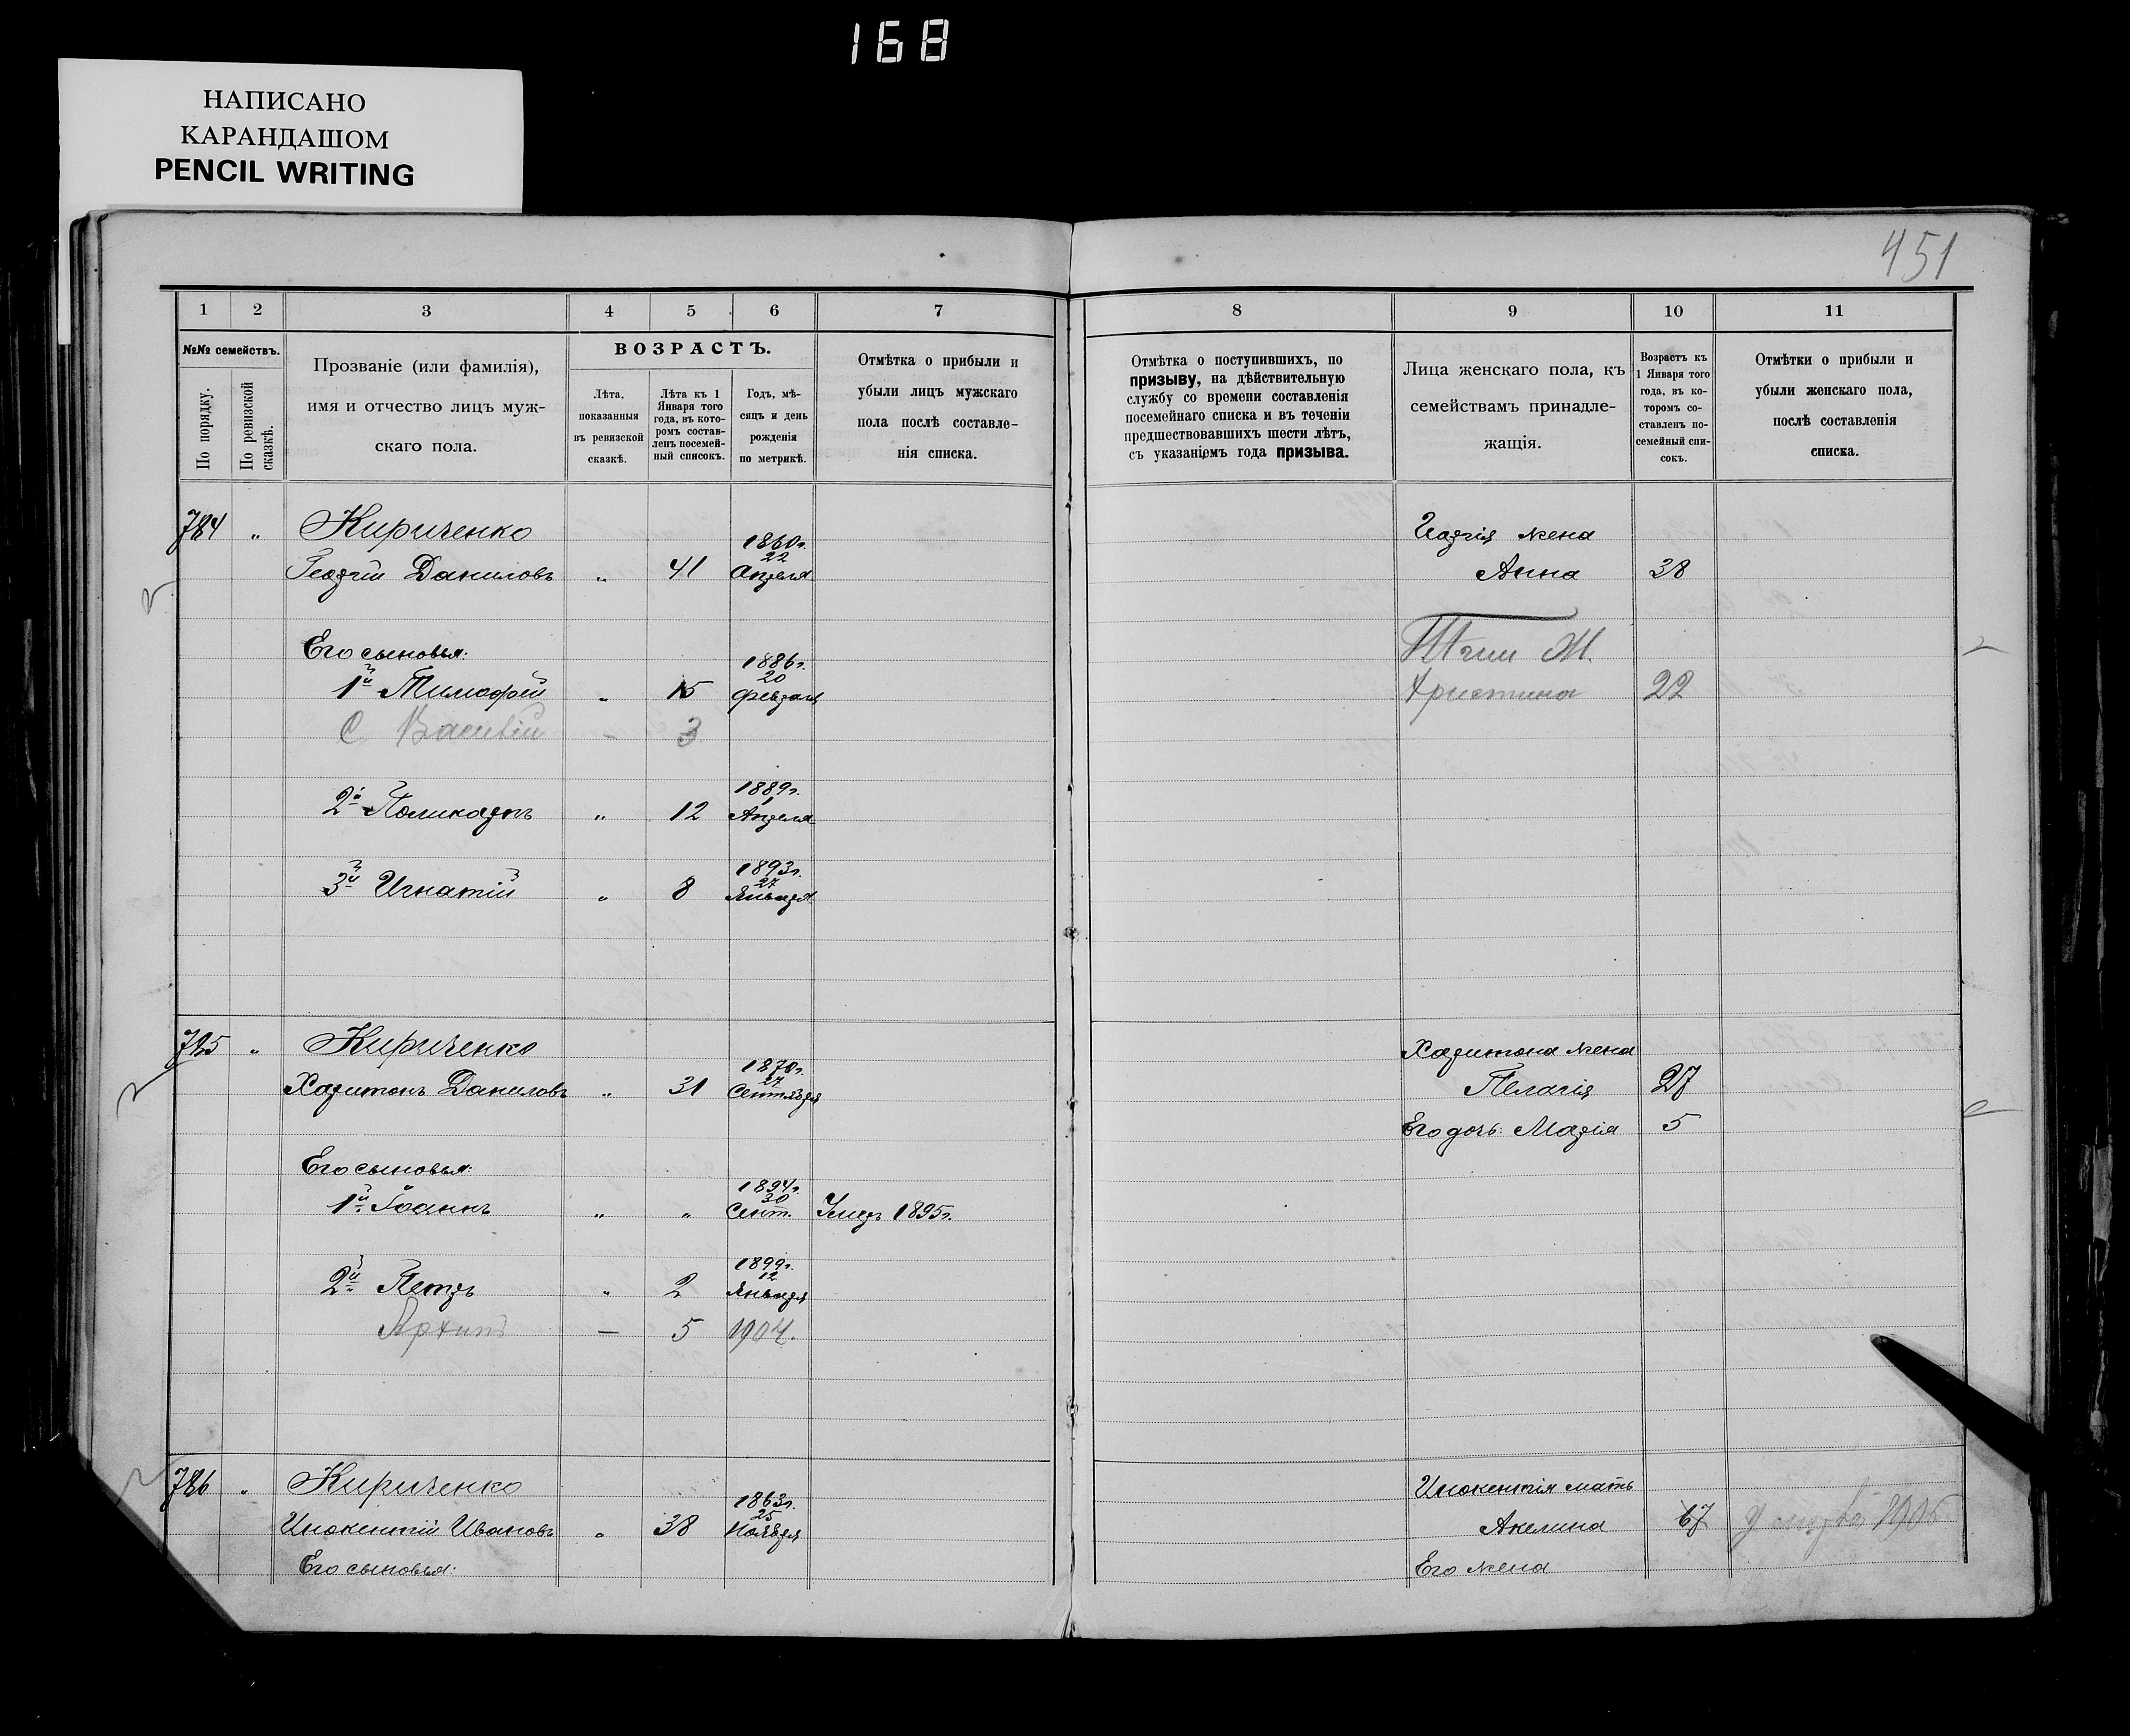 168
НАПИСАНО
КАРАНДАШОМ
PENCIL WRITING
451
1 2 3 4 5 6 7 8 9 10 11
№№ семействъ.
По порядку.
По ревизской сказкѣ.
Прозваніе (или фамилія),
имя и отчество лицъ муж-
скаго пола.
ВОЗРАСТЪ.
Лѣта,
показанныя
въ ревизской
сказкѣ.
Лѣта къ 1
Января того
года, въ кото-
ромъ состав-
ленъ посемей-
ный списокъ.
Годъ, мѣ-
сяцъ и день
рожденія
по метрикѣ.
Отмѣтка о прибыли и
убыли лицъ мужскаго
пола послѣ составле-
нія списка.
Отмѣтка о поступившихъ, по
призыву, на дѣйствительную
службу со времени составленія
посемейнаго списка и въ теченіи
предшествовавшихъ шести лѣтъ,
съ указаніемъ года призыва.
Лица женскаго пола, къ
семействамъ принадле-
жащія.
Возрастъ къ
1 Января того
года, въ ко-
торомъ со-
ставленъ по-
семейный спи-
сокъ.
Отмѣтки о прибыли и
убыли женскаго пола,
послѣ составленія
списка.
784 " Кириченко
1860г.
22
Георгій Даниловъ " 41 Апреля
Его сыновья:
1886г.
20
1й Тимофѣй " 15 февраля
С Василій — 3
1889г.
1
2й Поликарпъ " 12 Апреля
1893г.
27
3й Игнатій " 8 Января
жена
Анна 38
Христина 22
785 " Кириченко
1870г.
27
Харитонъ Даниловъ " 31 Сентября
Его сыновья:
1894г.
30
1й Іоаннъ " " Сент. Умеръ 1895г.
1899г.
12
2й Петръ " 2 Января
Архипъ — 5 1904.
Харитона жена
Пелагія 27
Его дочь: Марія 5
786 " Кириченко
1863г.
25
Инокентій Ивановъ " 38 Ноября
Его сыновья:
Инокентія мать
Акелина 67
Его жена